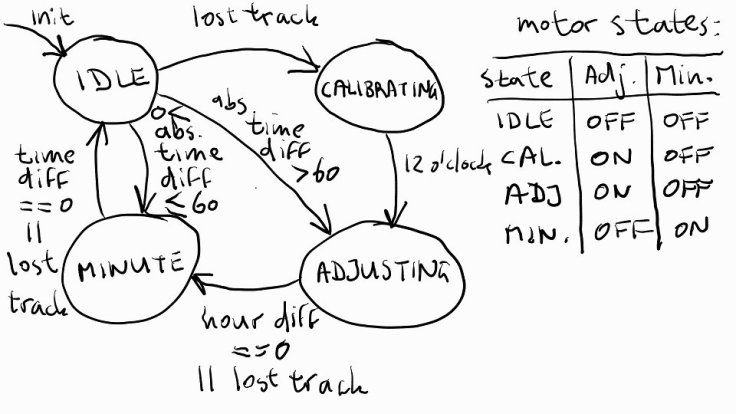 init
lost track
motor states:
IDLE
CALIBRATING
state Adj. Min.
IDLE OFF OFF
CAL. ON OFF
ADJ ON OFF
MIN. OFF ON
0<
abs.
time
diff
<60
abs
time
diff
>60
12 o'clock
time
diff
==0
||
lost
track
MINUTE
ADJUSTING
hour diff
==0
|| lost track